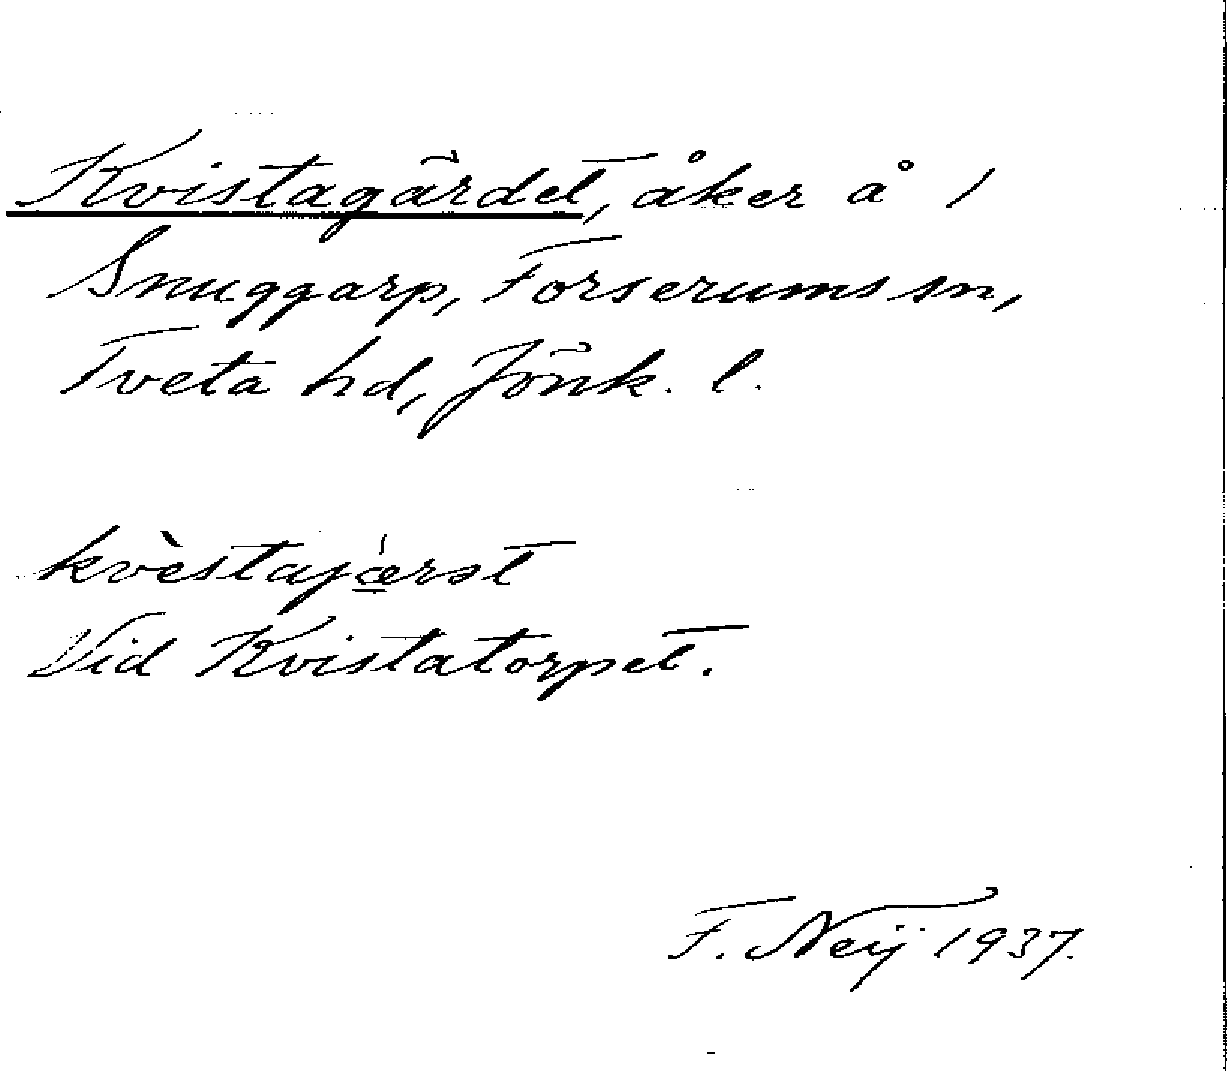 Kvistagärdet, åker å 1
Snuggarp, Forserums sn,
Tveta hd, Jönk. l.
kvèstajǽ̲rət
Vid Kvistatorpet.
F. Neij 1937.